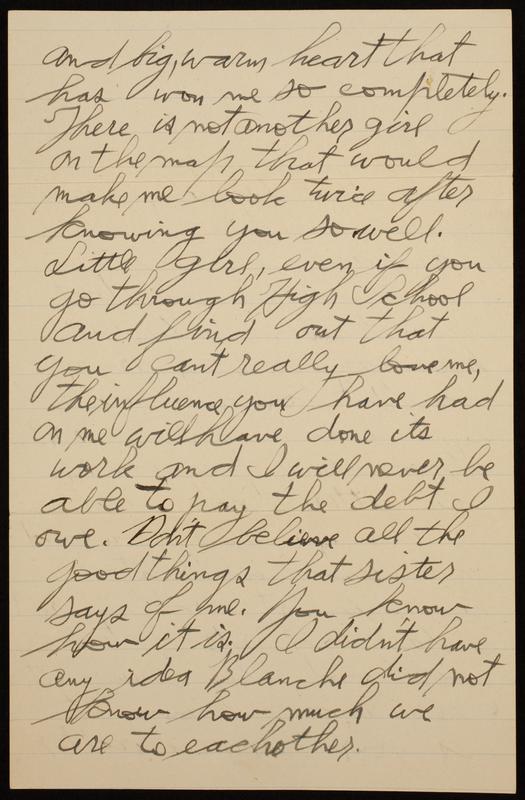 and big, warm heart that
has won me so completely.
There is not another girl
on the map that would
make me look twice after
knowing you so well.
Little girl, even if you
go through High School
and find out that
you can't really love me,
the influence you have had
on me will have done its
work and I will never be
able to pay the debt I
owe. Don't believe all the
good things that sister
says of me. You know
how it is. I didn't have
any idea Blanche did not
know how much we
are to each other.